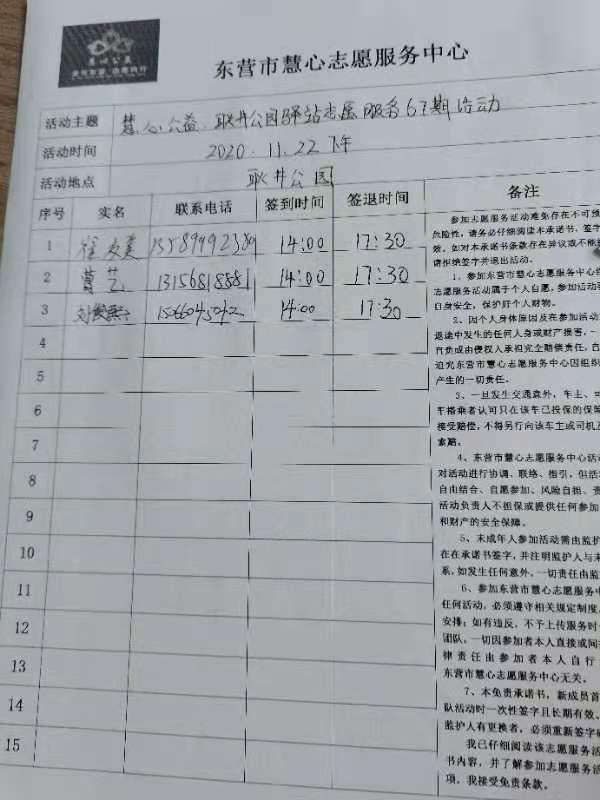 东营市慧心志愿服务中心
活动主题 慧心公益.耿井公园驿站志愿服务67期活动
活动时间 2020.11.22下午
活动地点 耿井公园
序号 实名 联系电话 签到时间 签退时间 备注
1 14:00 17:30
2 葛艺 13156818881 14:00 17:30
3 14:00 17:30
4
5
6
7
8
9
10
11
12
13
14
15
参加志愿服务活动难免存在不可预
危险性，请务必仔细阅读本承诺书，签字
效。如对本承诺书条款存在异议或不能
请拒绝签字并退出活动。
1、参加东营市慧心志愿服务中心
志愿服务活动属于个人自愿，参加活动
自身安全，保护好个人财物。
2、因个人身体原因及在参加活动
退途中发生的任何人身或财产损害，一
自负或由侵权人承担完全赔偿责任，
追究东营市慧心志愿服务中心因组织
产生的一切责任。
3、一旦发生交通意外，车主、
车搭乘者认可只在该车已投保的保
接受赔偿，不将另行向该车主或司机
索赔。
4、东营市慧心志愿服务中心活
对活动进行协调、联络、指引，但活
自由结合、自愿参加、风险自担、责
活动负责人不担保或提供任何参加
和财产的安全保障。
5、未成年人参加活动需由监护
在在承诺书签字，并注明监护人与未
系，如发生任何意外，一切责任由监
6、参加东营市慧心志愿服务中
任何活动，必须遵守相关规定制度，
安排；如有违反，不予上传服务时
团队，一切因参加者本人直接或间
律责任由参加者本人自行
东营市慧心志愿服务中心无关。
7、本免责承诺书，新成员首
队活动时一次性签字且长期有效、
监护人有更换者，必须重新签字
我已仔细阅读该志愿服务活
书内容，并了解参加志愿服务活
项，我接受免责条款。